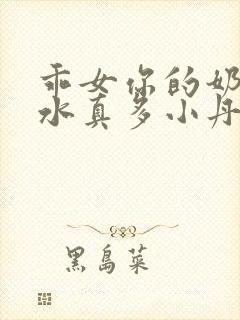 乖女你的奶
水真多小丹
黑島菜